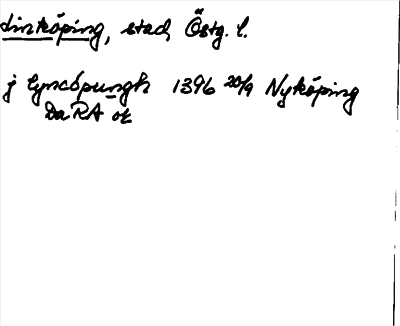 Linköping, stad, Östg. l.
j Lyncöpungh 1396 20/9 Nyköping
DaRA or